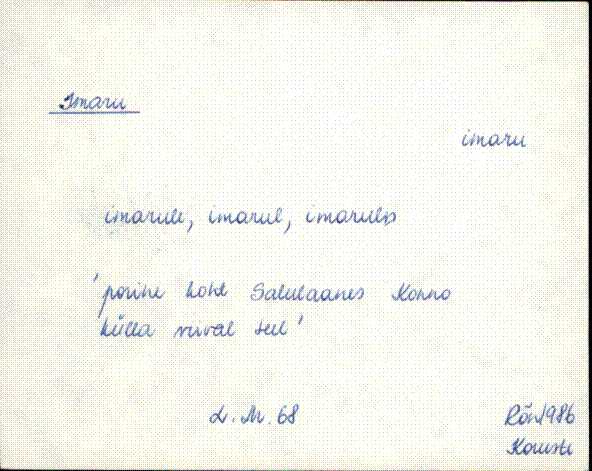 Imaru
imaru
imarule, imarul, imarules
'porine koht Salulaanes Konno
külla viival teel'
L. M. 68
Rõn 1986
Korusti